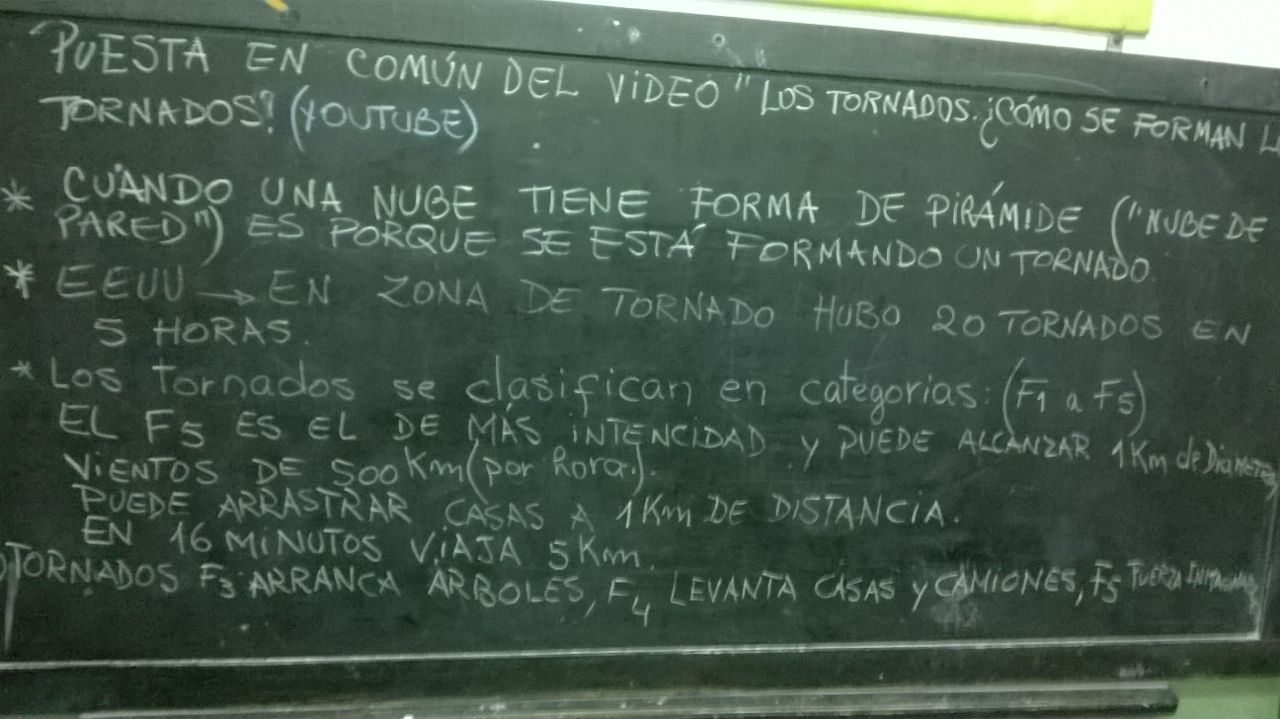 PUESTA EN COMÚN DEL VIDEO "LOS TORNADOS. ¿CÓMO SE FORMAN
TORNADOS? (YOUTUBE)
* CUÁNDO UNA NUBE TIENE FORMA DE PIRÁMIDE ("NUBE DE
PARED") ES PORQUE SE ESTÁ FORMANDO UN TORNADO.
* EEUU → EN ZONA DE TORNADO HUBO 20 TORNADOS EN
5 HORAS.
* Los tornados se clasifican en categorías: (F1 a F5)
EL F5 ES EL DE MÁS INTENCIDAD Y PUEDE ALCANZAR 1Km de
VIENTOS DE 500 Km (por hora.).
PUEDE ARRASTRAR CASAS A 1Km DE DISTANCIA.
EN 16 MINUTOS VIAJA 5Km.
TORNADOS F3 ARRANCA ÁRBOLES, F4 LEVANTA CASAS Y CAMIONES, F5 FUERZA